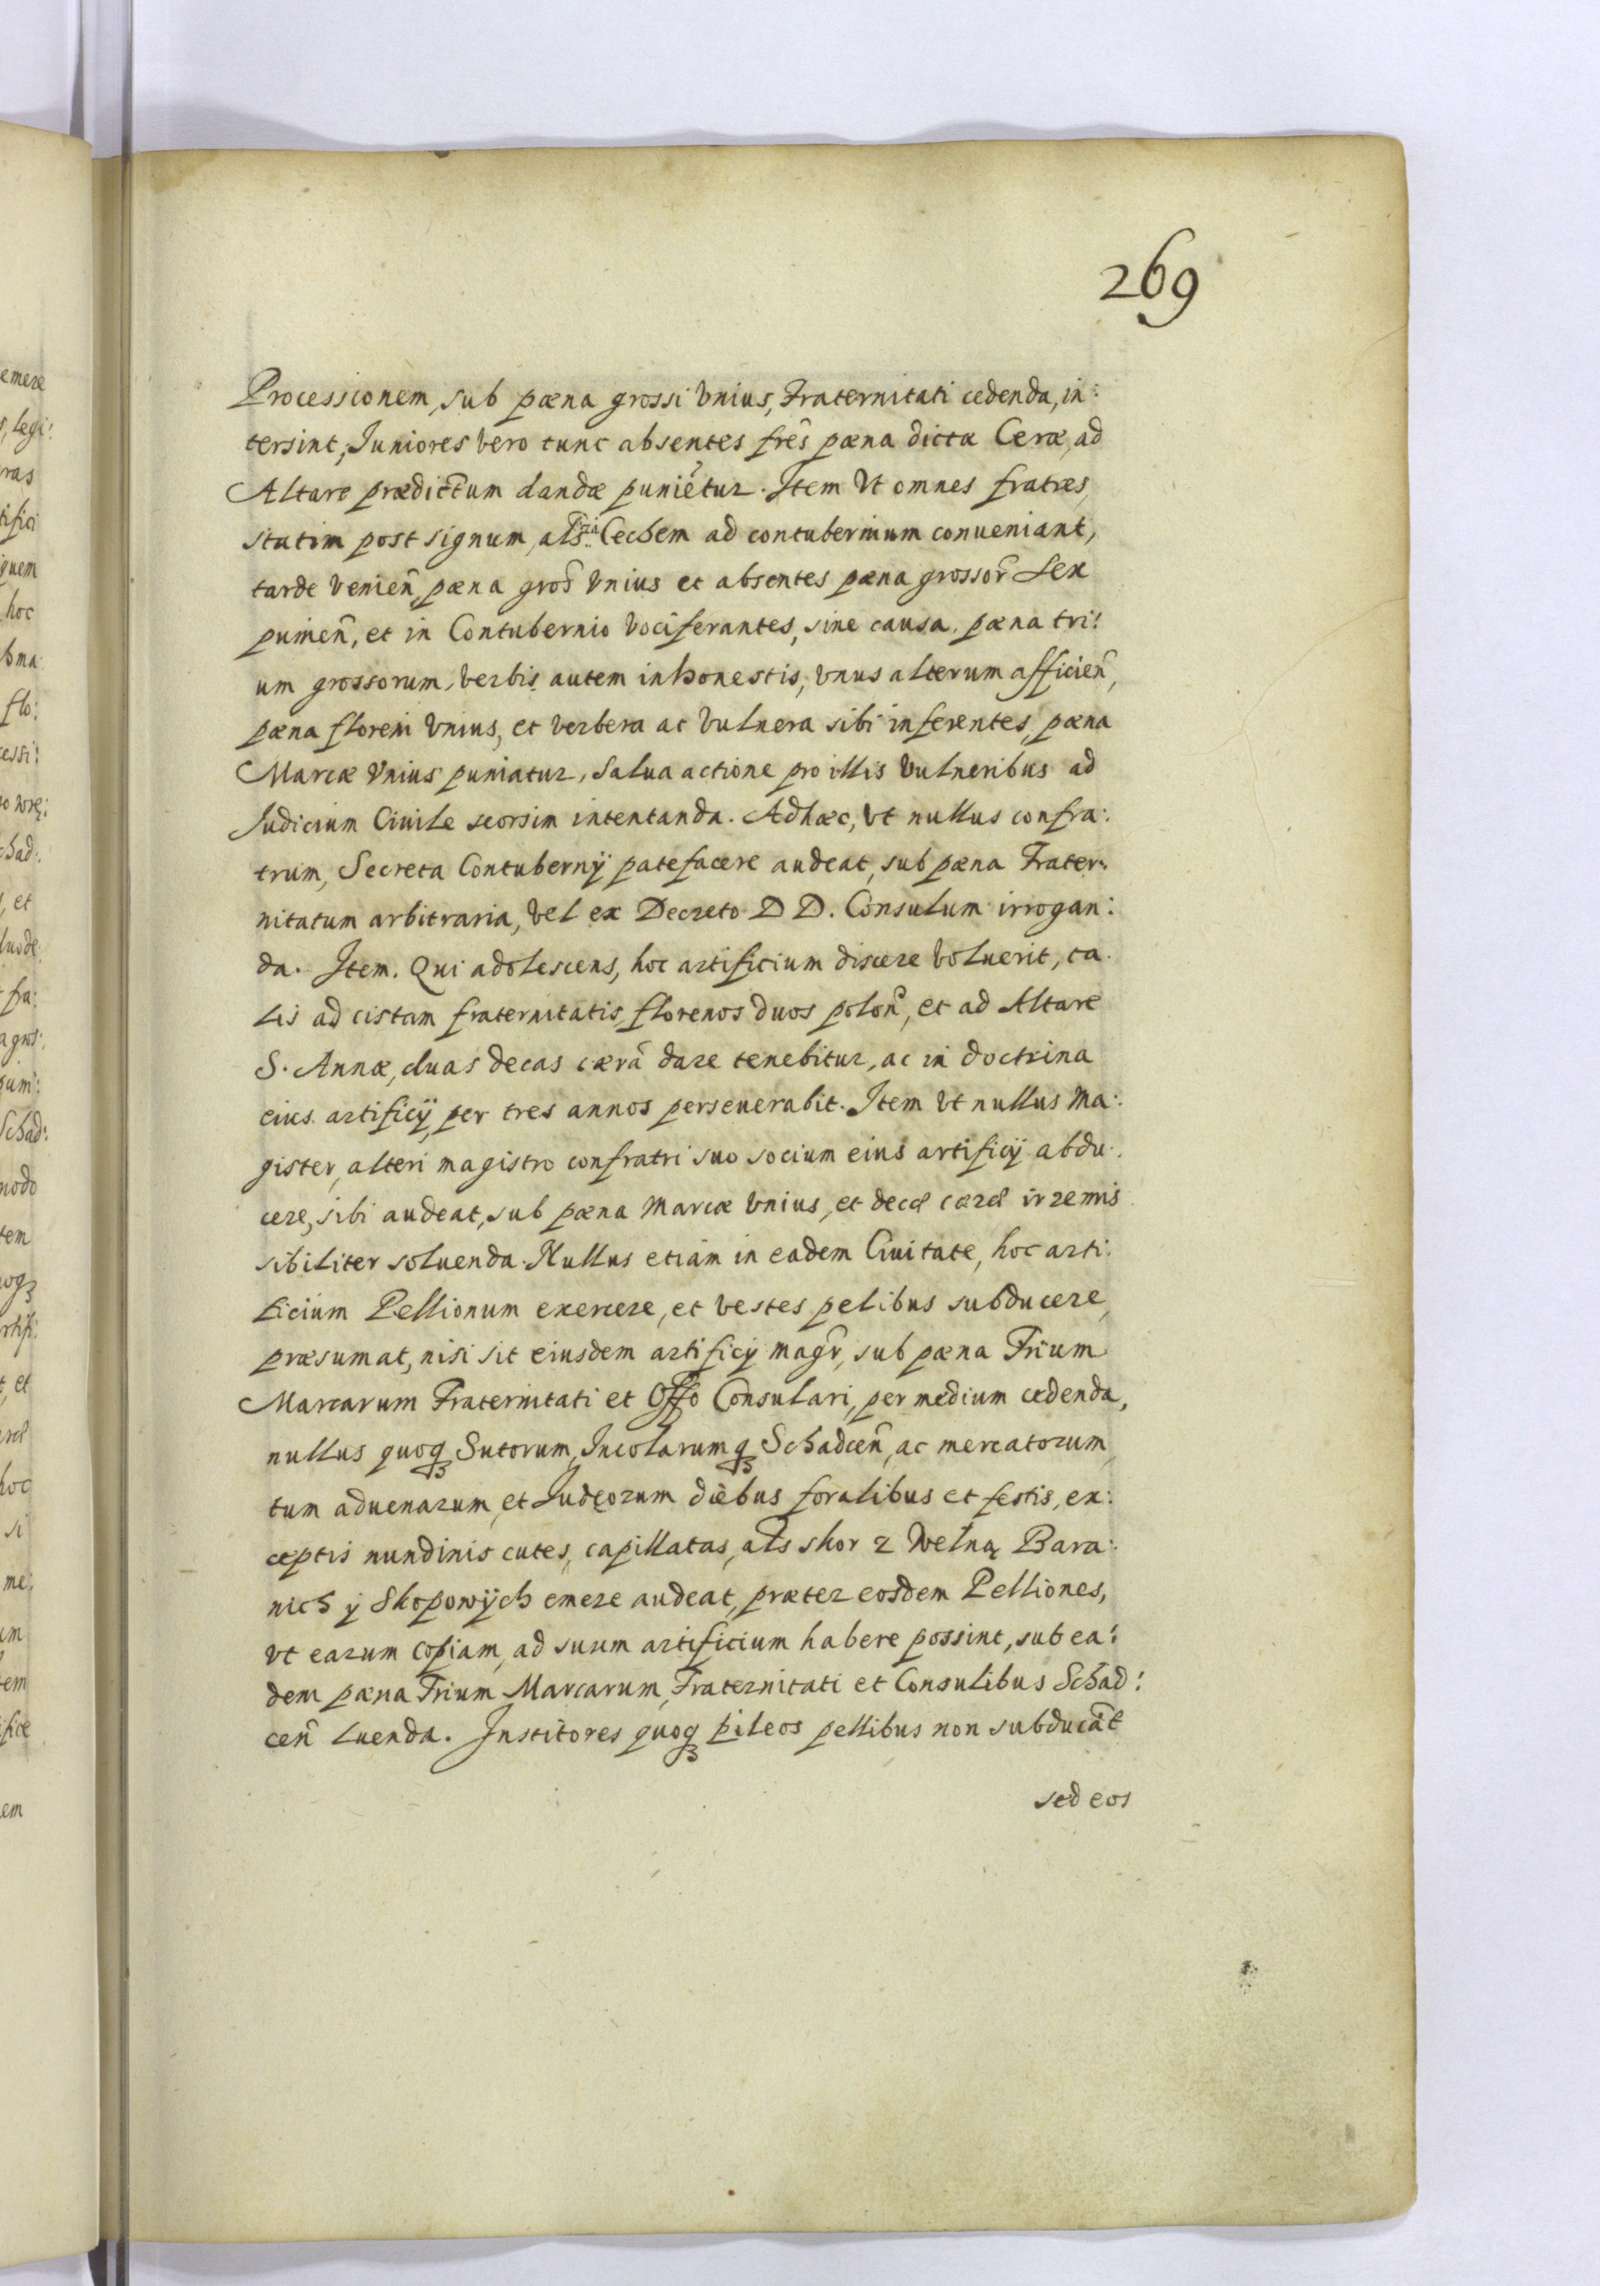 269
Processionem, sub pæna grossi Vnius, Fraternitati cedenda, in:
tersint, Juniores vero tunc absentes frẽs pæna dicta Ceræ, ad
Altare prædictum dandæ puniẽtur. Item Vt omnes fratres,
statim post signum, als Cechem ad contubernium conueniant,
tarde venieñ, pæna gros̃ Vnius et absentes pæna grossor̃ Sex
punieñ, et in Contubernio Vociferantes, sine causa pæna tri:
um grossorum, verbis autem inhonestis, vnus alterum afficieñ,
pæna floreni Vnius, et verbera ac Vulnera sibi inferentes, pæna
Marcæ Vnius puniatur, Salua actione pro illis Vulneribus ad
Judicium Ciuile seorsim intentanda. Adhæc, Vt nullus confra:
trum, Secreta Contubernÿ patefacere audeat, sub pæna Frater:
nitatum arbitraria, vel ex Decreto D D. Consulum irrogan:
da. Item. Qui adolescens, hoc artificium discere Voluerit, ta:
lis ad cistam fraternitatis, florenos duos poloñ, et ad Altare
S. Annæ, duas decas cærã dare tenebitur, ac in doctrina
eius artificÿ, per tres annos perseuerabit. Item Vt nullus Ma:
gister, alteri magistro confratri suo socium eius artificÿ abdu:
cere, sibi audeat, sub pæna Marcæ Vnius, et decæ ceræ irremis
sibiliter soluenda. Nullus etiam in eadem Ciuitate, hoc arti:
ficium Pellionum exercere, et vestes pelibus subducere,
præsumat, nisi sit eiusdem artificÿ magr̃, sub pæna Trium
Marcarum Fraternitati et Offo Consulari, per medium cedenda,
nullus quoqꝫ Sutorum, Incolarumqꝫ Schadceñ, ac mercatorum,
tum aduenarum, et Judęorum diebus foralibus et festis, ex:
ceptis nundinis cutes, capillatas, als skor z Wełną Bara:
nich ÿ Skopowÿch emere audeat, præter eosdem Pelliones,
vt earum copiam, ad suum artificium habere possint, sub ea:
dem pæna Trium Marcarum, Fraternitati et Consulibus Schad:
ceñ luenda. Institores quoqꝫ pileos pellibus non subducãt
sed eos